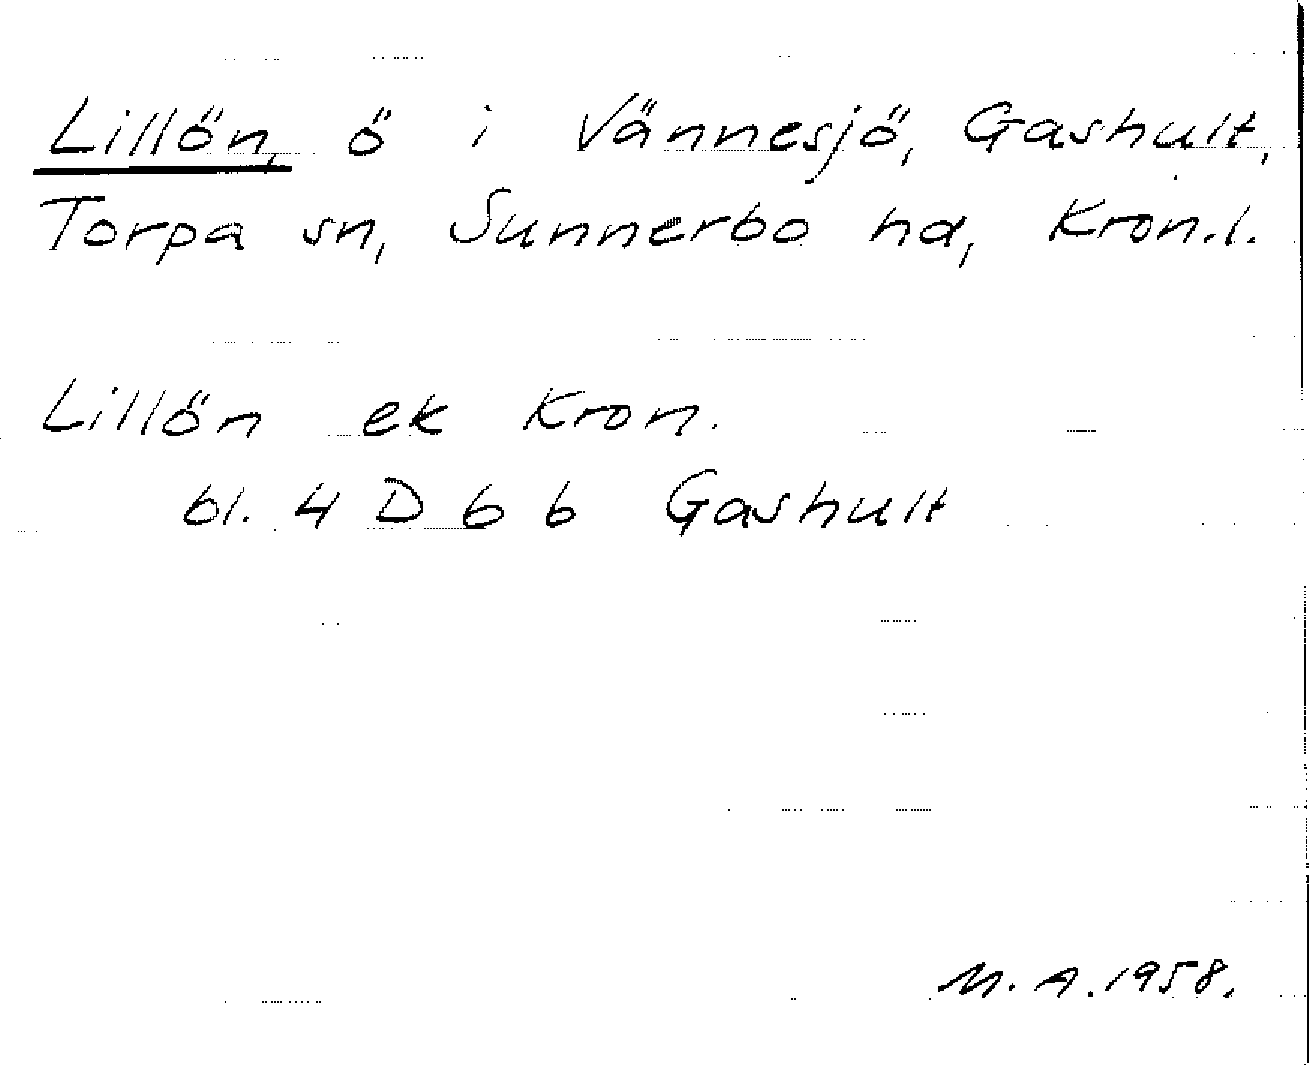 Lillön, ö i Vännesjö, Gashult,
Torpa sn, Sunnerbo hd, Kron.l.
Lillön ek Kron.
bl. 4 D 6 b Gashult
M. A. 1958.